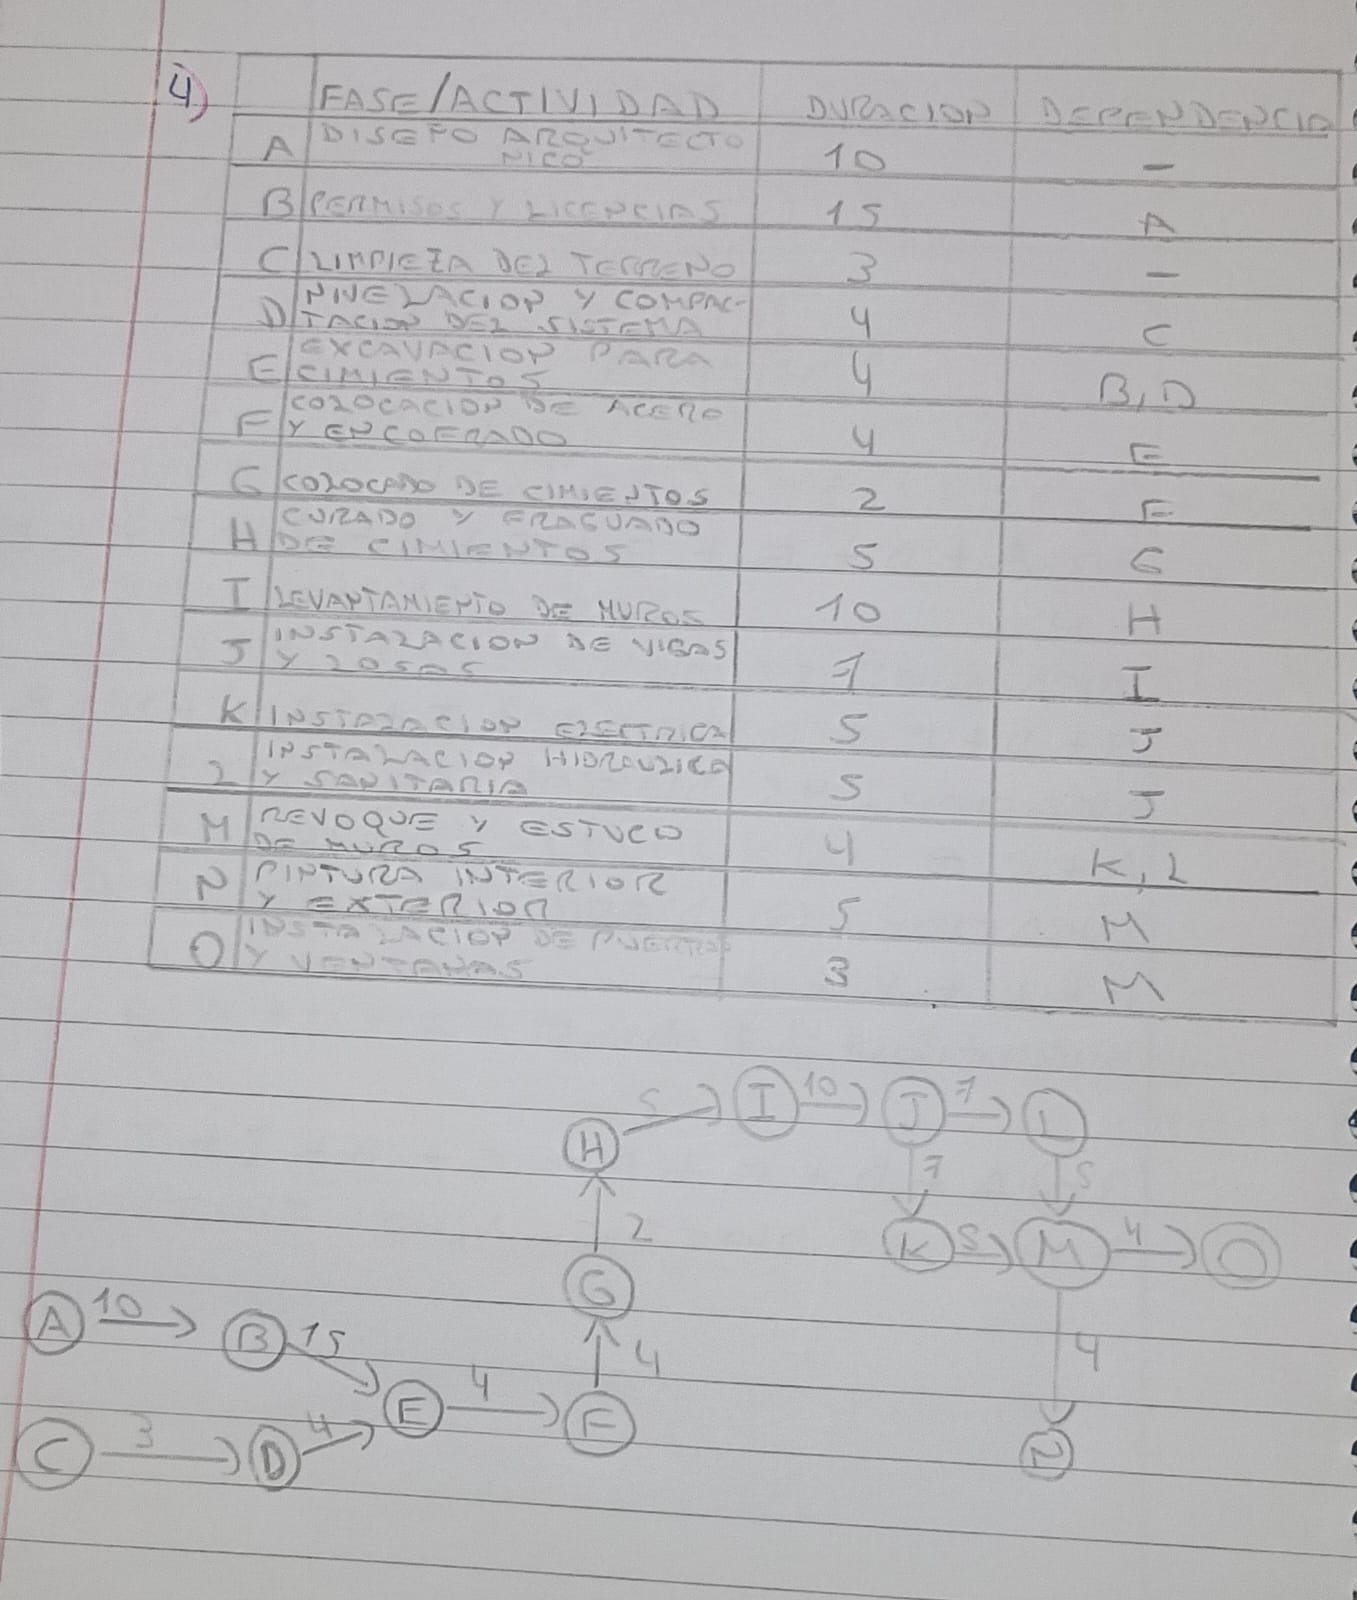 4) FASE/ACTIVIDAD DURACION DEPENDENCIA
A DISEÑO ARQUITECTO
NICO 10 -
B PERMISOS Y LICENCIAS 15 A
C LIMPIEZA DEL TERRENO 3 -
NIVELACION Y COMPAC-
D TACION DEL SISTEMA 4 C
EXCAVACION PARA
E CIMIENTOS 4 B, D
COLOCACION DE ACERO
F Y ENCOFRADO 4 E
G COLOCADO DE CIMIENTOS 2 F
CURADO Y FRAGUADO
H DE CIMIENTOS 5 G
I LEVANTAMIENTO DE MUROS 10 H
INSTALACION DE VIGAS
J Y LOSAS 7 I
K INSTALACION ELECTRICA 5 J
INSTALACION HIDRAULICA
L Y SANITARIA 5 J
REVOQUE Y ESTUCO
M DE MUROS 4 K, L
PINTURA INTERIOR
N Y EXTERIOR 5 M
INSTALACION DE PUERTAS
O Y VENTANAS 3 M
H 5 I 10 J 7 L
7 5
2 K 5 M 4 O
G
A 10 B 15 4 4
E 4 F
C 3 D 4 N